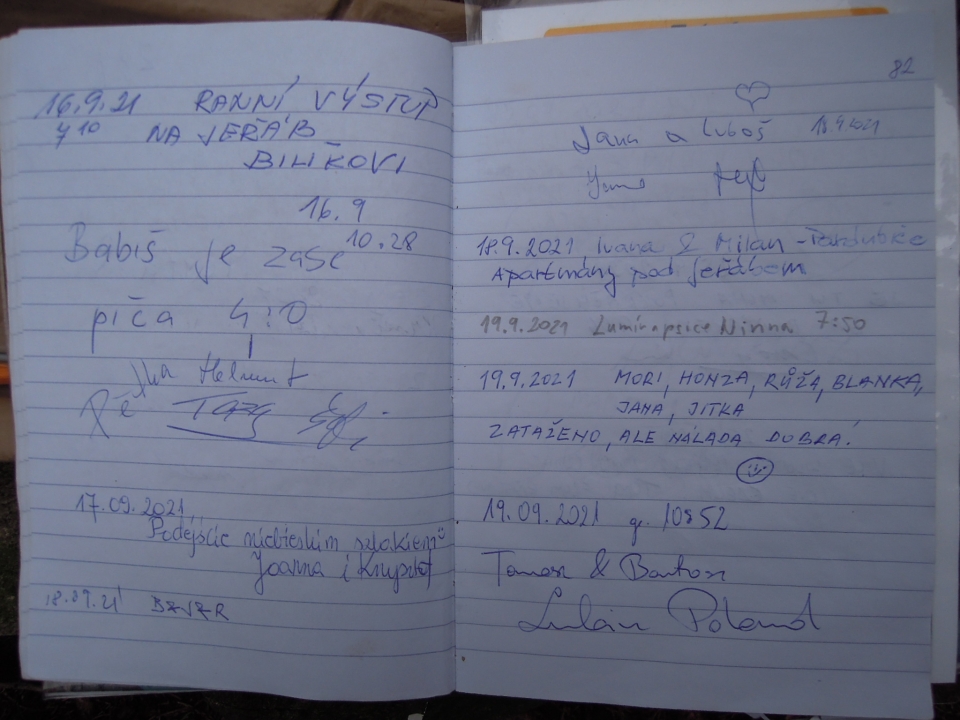 16.9.21 RANNÍ VÝSTUP
7 10 NA JEŘÁB
BILÍKOVI
16.9
10.28
Babiš je zase
píča 4:0
Helmut
17.09.2021
Podejście niebieskim szlakiem
Joanna i Krzysztof
18.09.21
82
Jana a Luboš 18.9.2021
18.9.2021 Ivana & Milan - Pardubice
Apartmány pod Jeřábem
19.9.2021 Ninna 7:50
19.9.2021 MORI, HONZA, RŮŽA, BLANKA,
JANA, JITKA
ZATAŽENO, ALE NÁLADA DOBRÁ.
19.09.2021 g. 1052
Tomasz & Bartosz
Poland